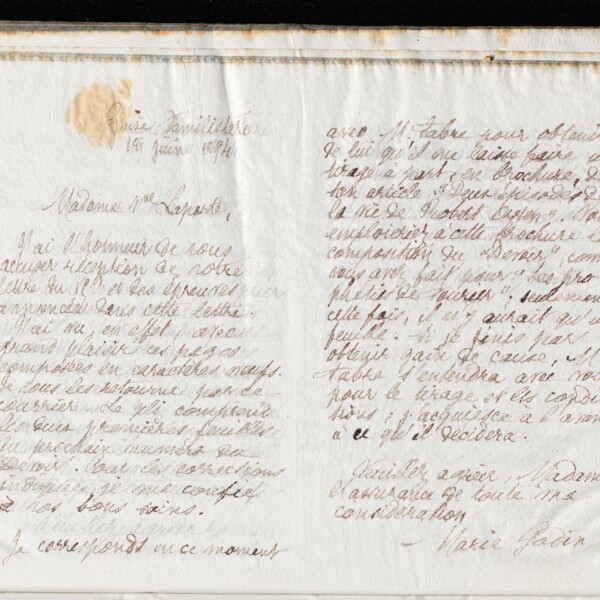 Guise Familistère
19 Juin 1894
Madame Vve Laporte,
J'ai l'honneur de vous
accuser réception de votre
lettre du 18 et des épreuves
annoncées dans cette lettre.
J'ai vu, en effet, avec
grand plaisir ces pages
composées en caractères neufs.
Je vous les retourne par ce
courrier. Le pli comprend
les deux premières feuilles
du prochain numéro du
Devoir. Pour les corrections
indiquées je me confie
à vos bons soins.
Je corresponds en ce moment
avec M. Fabre pour obtenir
de lui qu'il me laisse faire un
tirage à part, en brochure, de
son article "Deux épisodes de
la vie de Robert Owen".
emploierier à cette brochure la
composition du "Devoir", comme
vous avez fait pour "Les pro
phéties de Fourier", seulement
cette fois, il n'y aurait qu'une
feuille. Si je finis par
obtenir gain de cause, M.
Fabre s'entendra avec vous
pour le tirage et les condi
tions; j'acquiesce à l'avance
à ce qu'il décidera.
Veuillez agréer, Madame
l'assurance de toute ma
considération
- Marie Godin